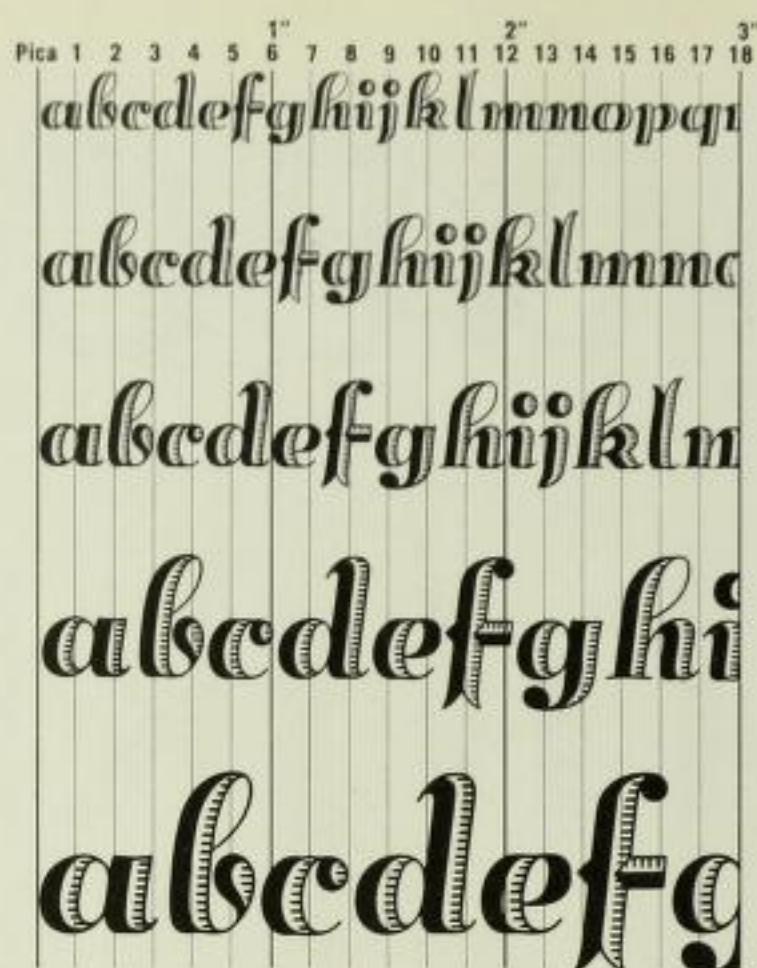 1" 2" 3"
Pica 1 2 3 4 5 6 7 8 9 10 11 12 13 14 15 16 17 18
abcdefghijklmnopqr
abcdefghijklmno
abcdefghijklm
abcdefghi
abcdefg